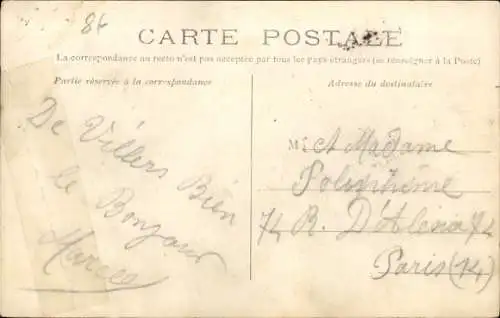 86
CARTE POSTALE
La correspondance au recto n'est pas acceptée par tous les pays étrangers (se renseigner à la Poste)
Partie réservée à la correspondance
Adresse du destinataire
De Villers Bien
le Bonjour
Marcel
M. et Madame
74 R. D'Alesia 74
Paris (14)